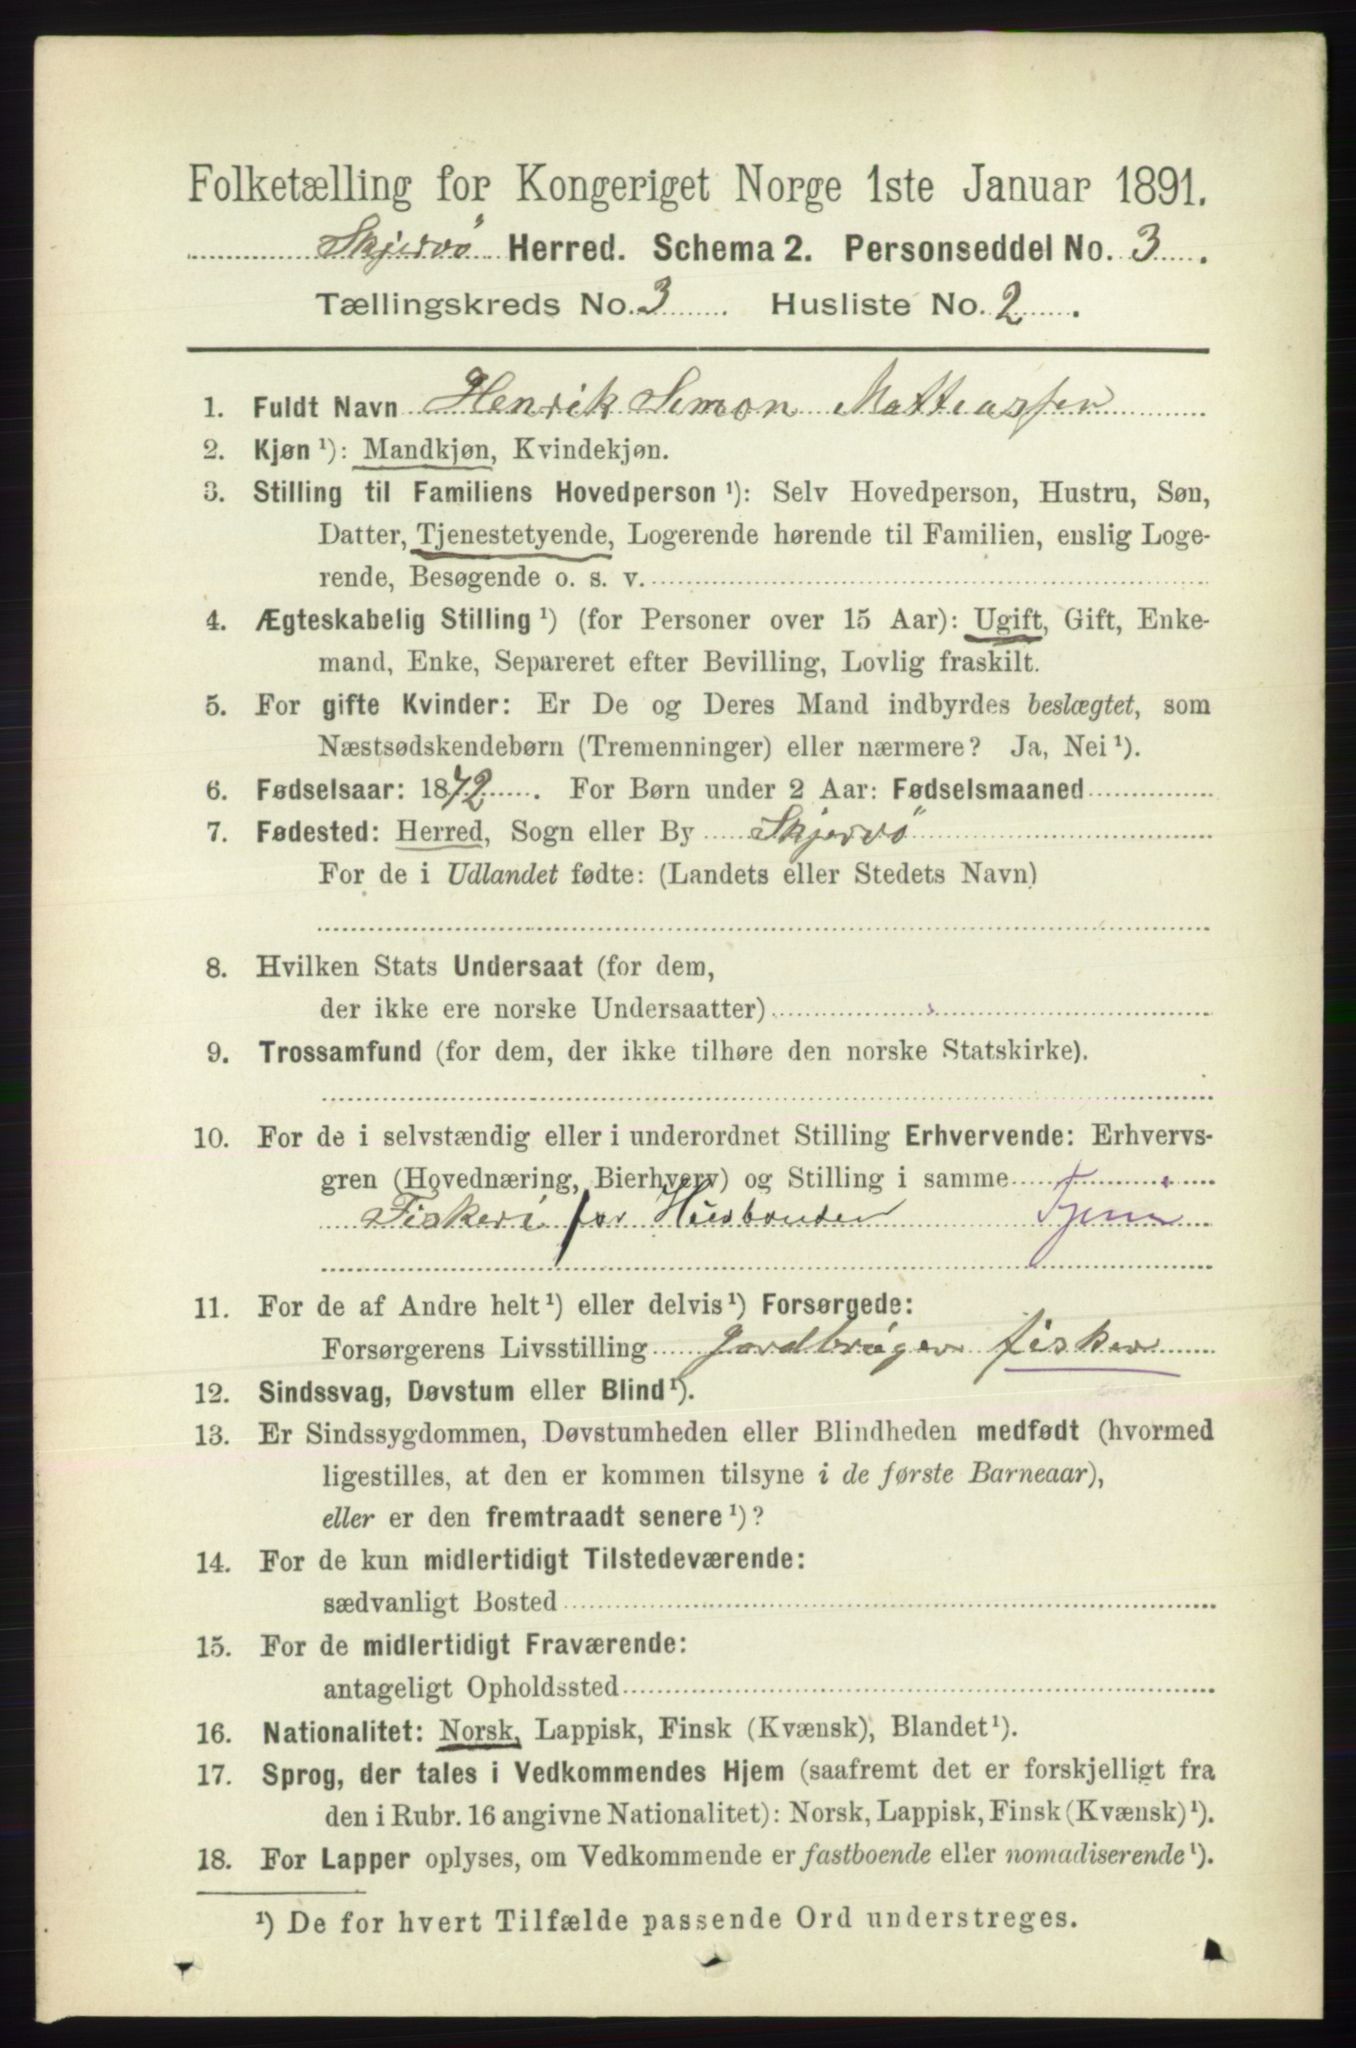 Folketælling for Kongeriget Norge 1ste Januar 1891.
Skjervö Herred. Schema 2. Personseddel No. 3.
Tællingskreds No. 3 Husliste No. 2.
1. Fuldt Navn Henrik Simon Mattiassen
2. Kjøn ¹): Mandkjøn, Kvindekjøn.
3. Stilling til Familiens Hovedperson ¹): Selv Hovedperson, Hustru, Søn,
Datter, Tjenestetyende, Logerende hørende til Familien, enslig Loge-
rende, Besøgende o. s. v.
4. Ægteskabelig Stilling ¹) (for Personer over 15 Aar): Ugift, Gift, Enke-
mand, Enke, Separeret efter Bevilling, Lovlig fraskilt.
5. For gifte Kvinder: Er De og Deres Mand indbyrdes beslægtet, som
Næstsødskendebørn (Tremenninger) eller nærmere? Ja, Nei ¹).
6. Fødselsaar: 1872. For Børn under 2 Aar: Fødselsmaaned
7. Fødested: Herred, Sogn eller By Skjervö
For de i Udlandet fødte: (Landets eller Stedets Navn)
8. Hvilken Stats Undersaat (for dem,
der ikke ere norske Undersaatter)
9. Trossamfund (for dem, der ikke tilhøre den norske Statskirke).
10. For de i selvstændig eller i underordnet Stilling Erhvervende: Erhvervs-
gren (Hovednæring, Bierhverv) og Stilling i samme
Fiskeri for Husbonden
11. For de af Andre helt ¹) eller delvis ¹) Forsørgede:
Forsørgerens Livsstilling Jordbruger fisker
12. Sindssvag, Døvstum eller Blind ¹).
13. Er Sindssygdommen, Døvstumheden eller Blindheden medfødt (hvormed
ligestilles, at den er kommen tilsyne i de første Barneaar),
eller er den fremtraadt senere ¹)?
14. For de kun midlertidigt Tilstedeværende:
sædvanligt Bosted
15. For de midlertidigt Fraværende:
antageligt Opholdssted
16. Nationalitet: Norsk, Lappisk, Finsk (Kvænsk), Blandet ¹).
17. Sprog, der tales i Vedkommendes Hjem (saafremt det er forskjelligt fra
den i Rubr. 16 angivne Nationalitet): Norsk, Lappisk, Finsk (Kvænsk) ¹).
18. For Lapper oplyses, om Vedkommende er fastboende eller nomadiserende ¹).
¹) De for hvert Tilfælde passende Ord understreges.